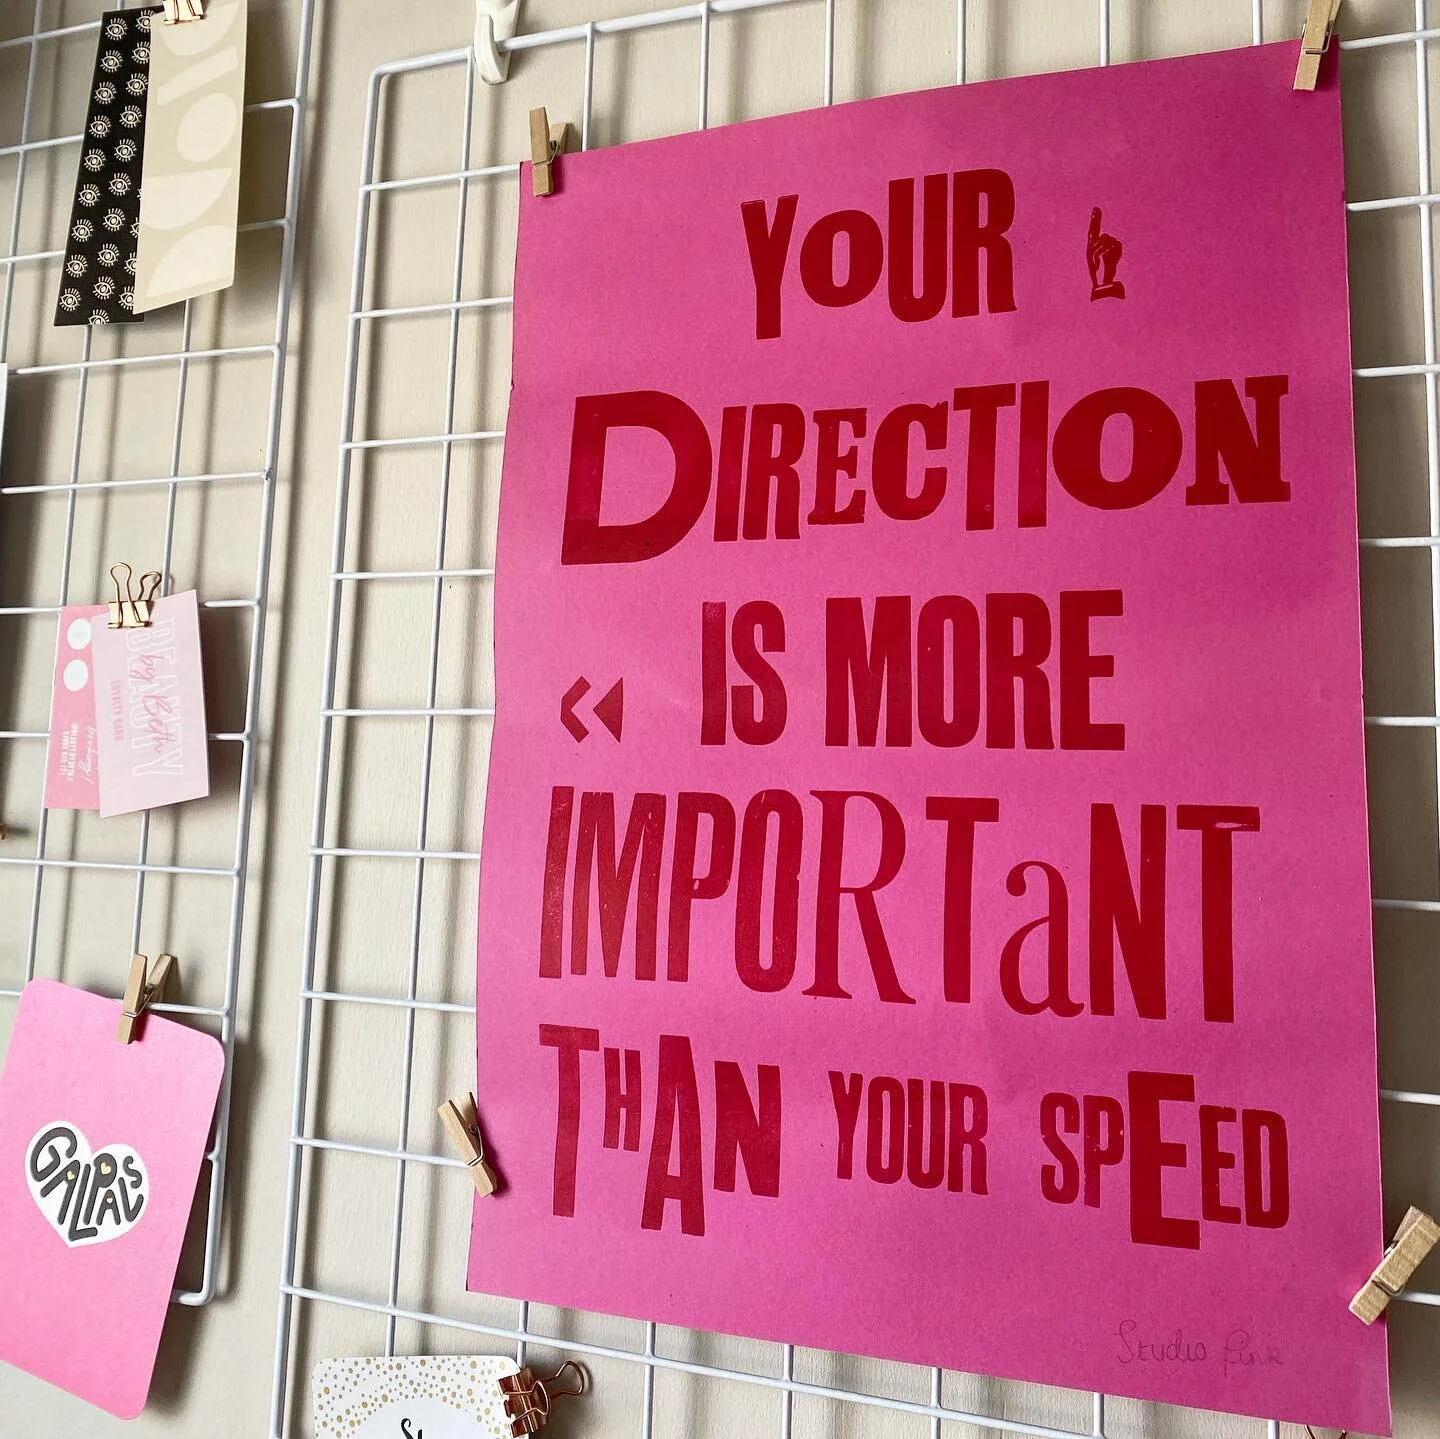 YOUR
DIRECTION
IS MORE
IMPORTaNT
THAN YOUR SPEED
Studio
BEAUTY
by Beth
LOYALTY CARD
GALPALS